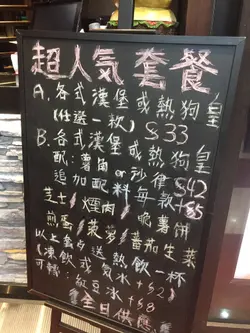 超人気套餐
A. 各式漢堡或熱狗皇
(任選一款) $33
B. 各式漢堡或熱狗皇
配:薯角或沙律 $42
追加配料每款+$5
芝士/煙肉/脆薯餅
煎蛋/菠蘿/蕃茄生菜
以上套歺送熱飲一杯
(凍飲或気水+$2)
可轉:紅豆冰+$8
全日供應